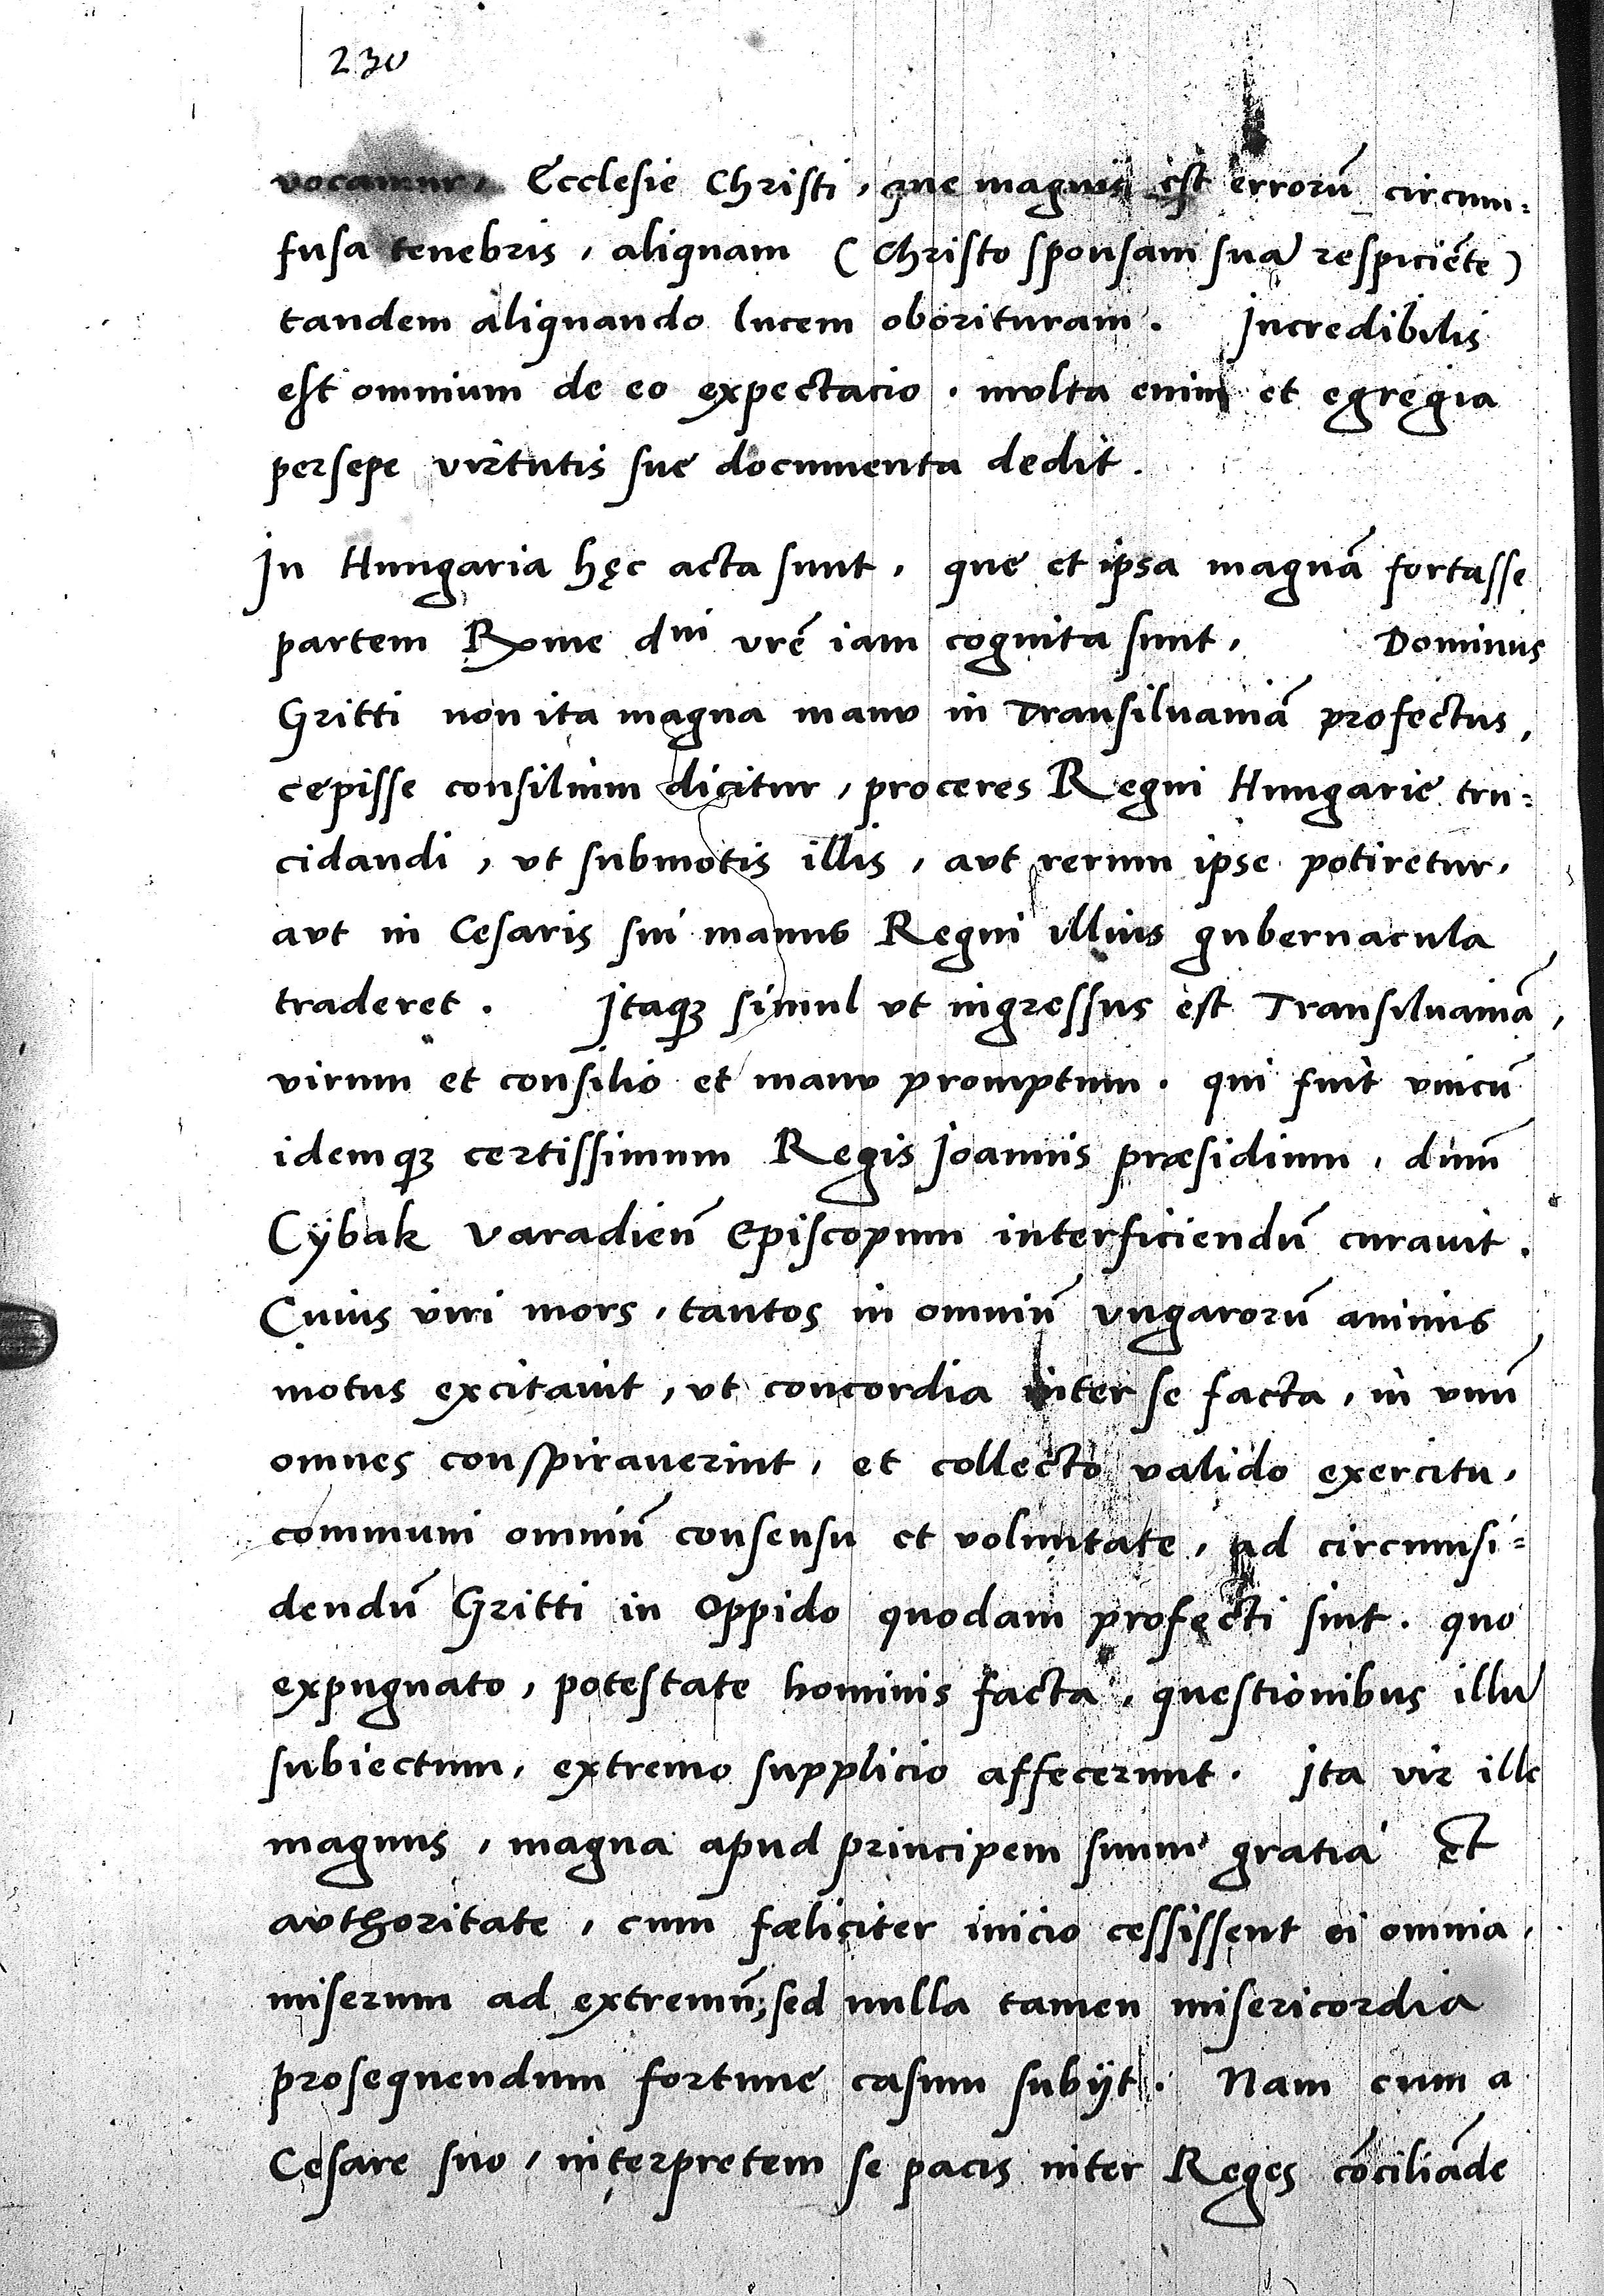 230
vocamur, Ecclesie Christi, que magnis est errorū circum:
fusa tenebris, aliquam (Christo sponsam suā respiciēte)
tandem aliquando lucem oborituram. Incredibilis
est omnium de eo expectacio. multa enim et egregia
persepe virtutis sue documenta dedit.
In Hungaria hęc acta sunt, que et ipsa magnā fortasse
partem Rxme dni vrē iam cognita sunt. Dominus
Gritti non ita magna manu in Transiluaniā profectus,
cepisse consilium dicitur, proceres Regni Hungarie tru:
cidandi, vt submotis illis, aut rerum ipse potiretur,
aut in Cesaris sui manus Regni illius gubernacula
traderet. Itaqꝫ simul vt ingressus est Transiluaniā,
virum et consilio et manu promptum. qui fuit vnicū
idemqꝫ certissimum Regis Joannis præsidium, dnm̄
Cÿbak varadien̄ Episcopum interficiendū curauit.
Cuius viri mors, tantos in omniū vngarorū animis
motus excitauit, vt concordia inter se facta, in vnū
omnes conspirauerint, et collecto valido exercitu,
communi omniū consensu et voluntate, ad circumsi=
dendū Gritti in oppido quodam profecti sint. quo
expugnato, potestate hominis facta, questionibus illū
subiectum, extremo supplicio affecerunt. Ita vir ille
magnus, magna apud principem suum gratia et
authoritate, cum fæliciter inicio cessissent ei omnia,
miserum ad extremū, sed nulla tamen misericordia
prosequendum fortune casum subijt. Nam cum a
Cesare suo, interpretem se pacis inter Reges cōciliāde